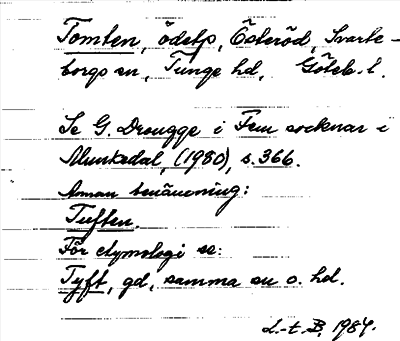 Tomten, ödelp, Österöd, Svarte-
borgs sn, Tunge hd, Göteb. l.
Se G. Drougge i Fem socknar i
Munkedal, (1980), s. 366.
Annan benämning:
Tuften.
För etymologi se:
Tyft, gd, samma sn o. hd.
L-t B, 1984.